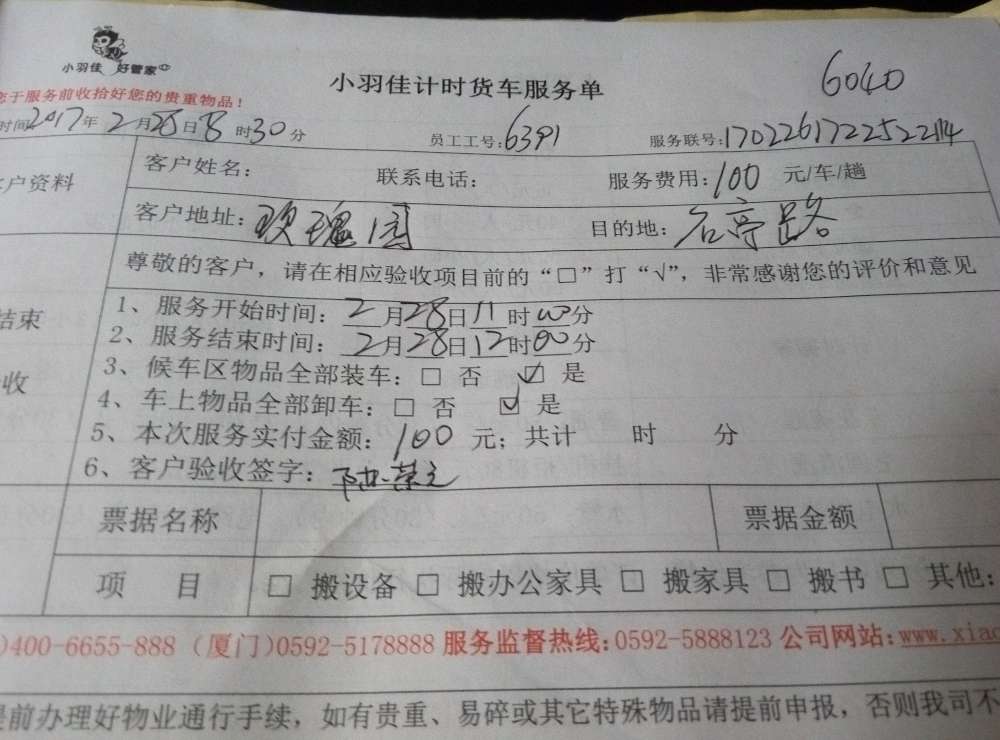 小羽佳 好管家
小羽佳计时货车服务单
6040
您于服务前收拾好您的贵重物品！
时间2017年2月28日8时30分 员工工号：6391 服务联号：170226172252214
客户资料
客户姓名： 联系电话： 服务费用：100 元/车/趟
客户地址：玫瑰园 目的地：石亭路
尊敬的客户，请在相应验收项目前的“□”打“√”，非常感谢您的评价和意见
结束
收
1、服务开始时间：2月28日11时00分
2、服务结束时间：2月28日12时00分
3、候车区物品全部装车：□ 否 ☑ 是
4、车上物品全部卸车：□ 否 ☑ 是
5、本次服务实付金额：100 元；共计 时 分
6、客户验收签字：
票据名称 票据金额
项 目 □ 搬设备 □ 搬办公家具 □ 搬家具 □ 搬书 □ 其他：
)400-6655-888（厦门)0592-5178888 服务监督热线：0592-5888123 公司网站：www.xiao
提前办理好物业通行手续，如有贵重、易碎或其它特殊物品请提前申报，否则我司不